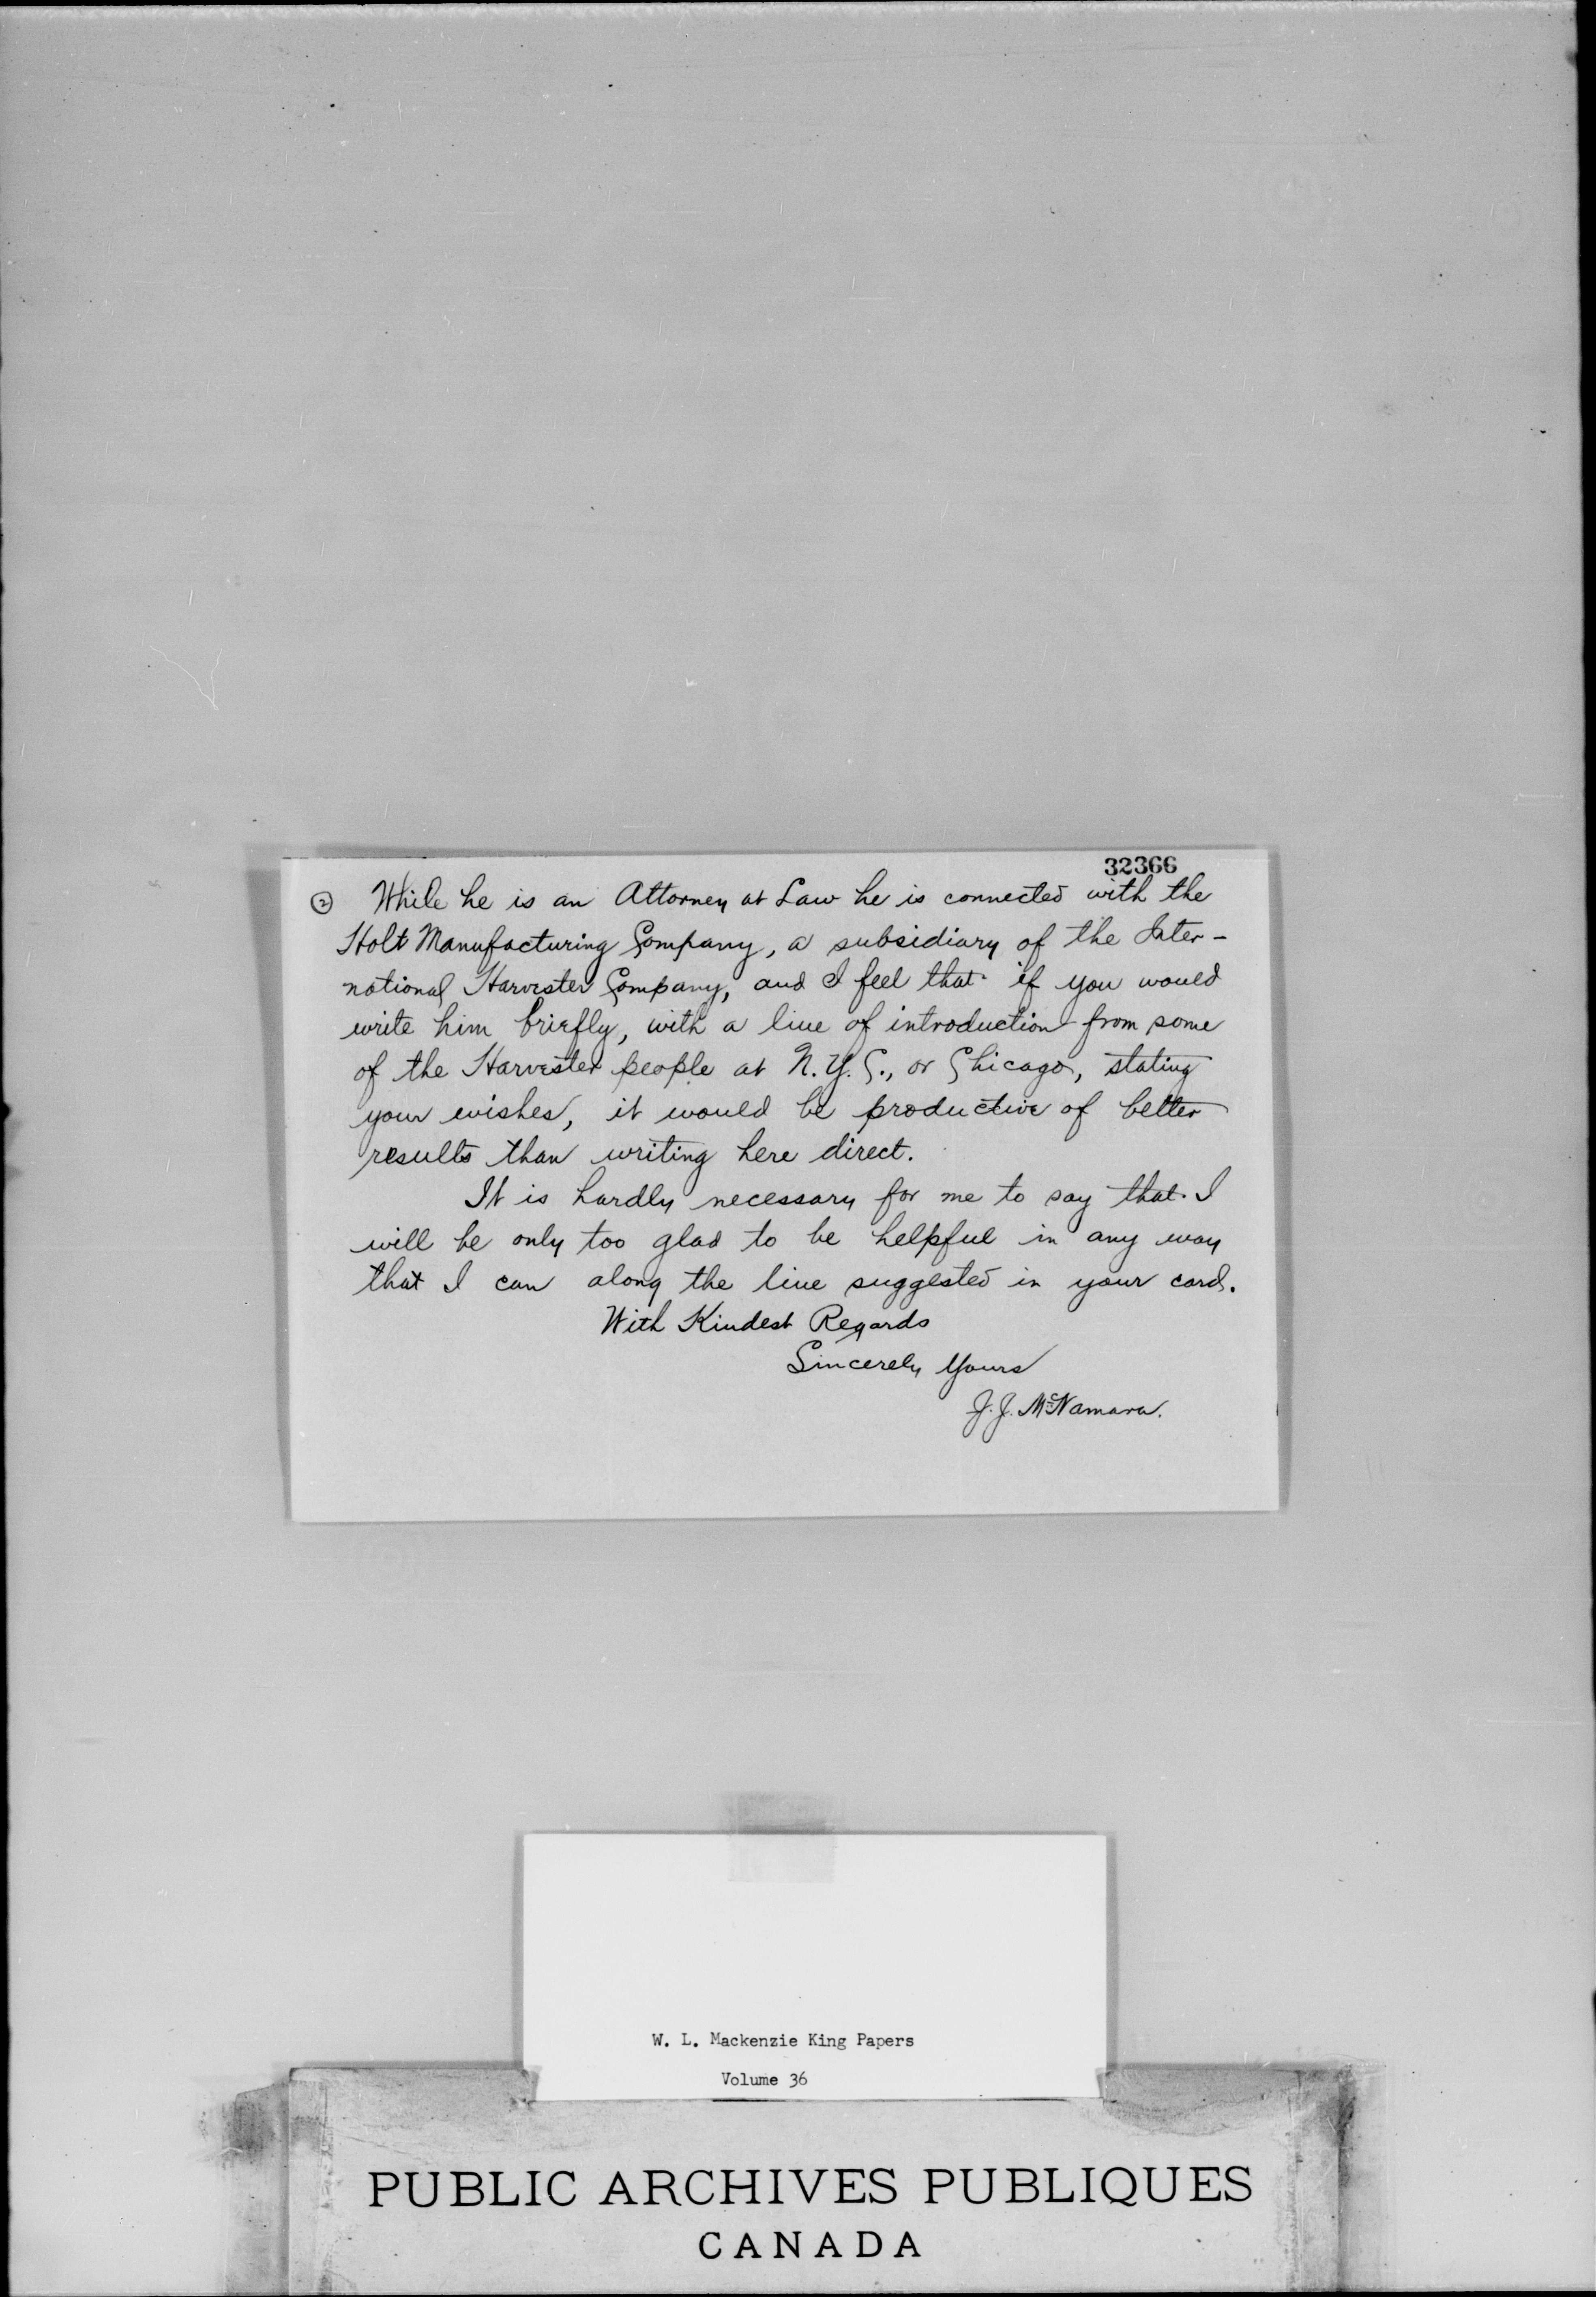 32366
② While he is an Attorney at Law he is connected with the
Holt Manufacturing Company, a subsidiary of the Inter-
national Harvester Company, and I feel that if you would
write him briefly, with a line of introduction from some
of the Harvester people at N.Y.C., or Chicago, stating
your wishes, it would be productive of better
results than writing here direct.
It is hardly necessary for me to say that I
will be only too glad to be helpful in any way
that I can along the line suggested in your card.
With Kindest Regards
Sincerely Yours
J.J. McNamara.
W. L. Mackenzie King Papers
Volume 36
PUBLIC ARCHIVES PUBLIQUES
CANADA